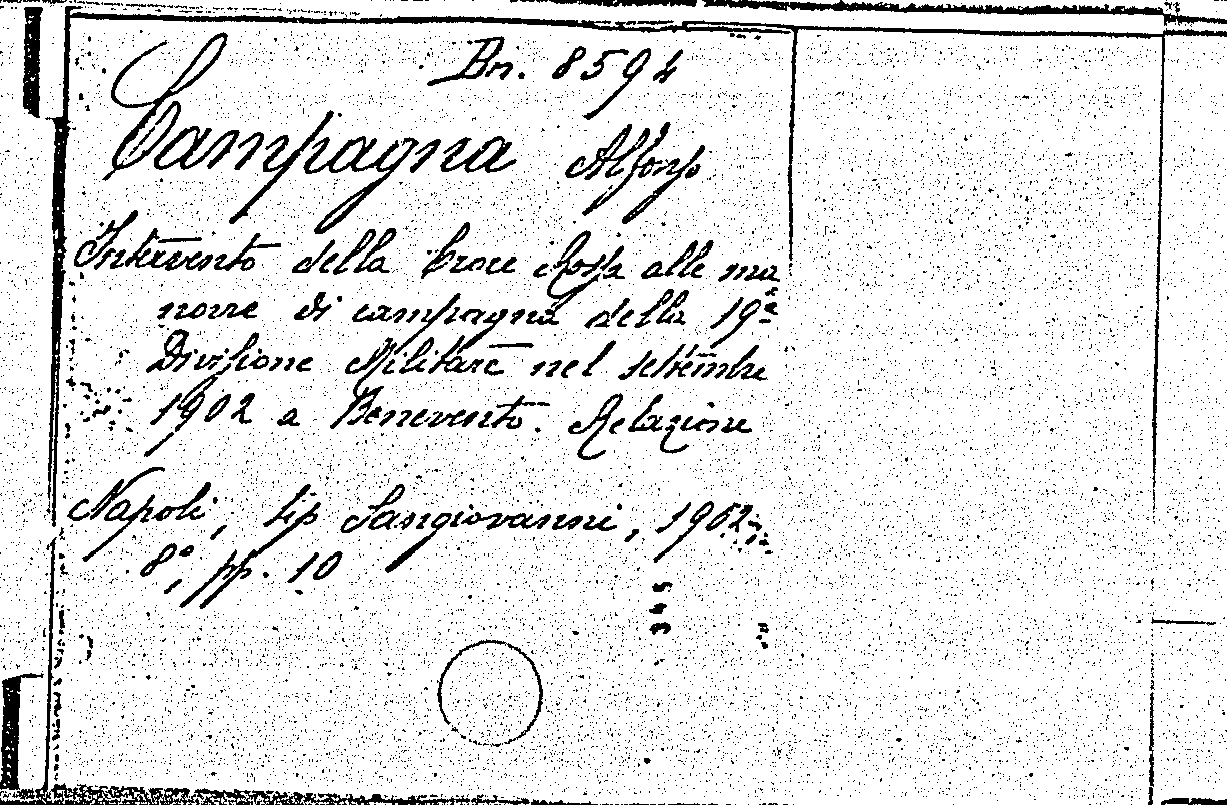 Bn. 8594
Campagna Alfonso
Intervento della Croce Rossa alle ma
novre di campagna della 19ª
Divisione Militare nel settembre
1902 a Benevento. Relazione
Napoli, tip Sangiovanni, 1902
8°, pp. 10
345